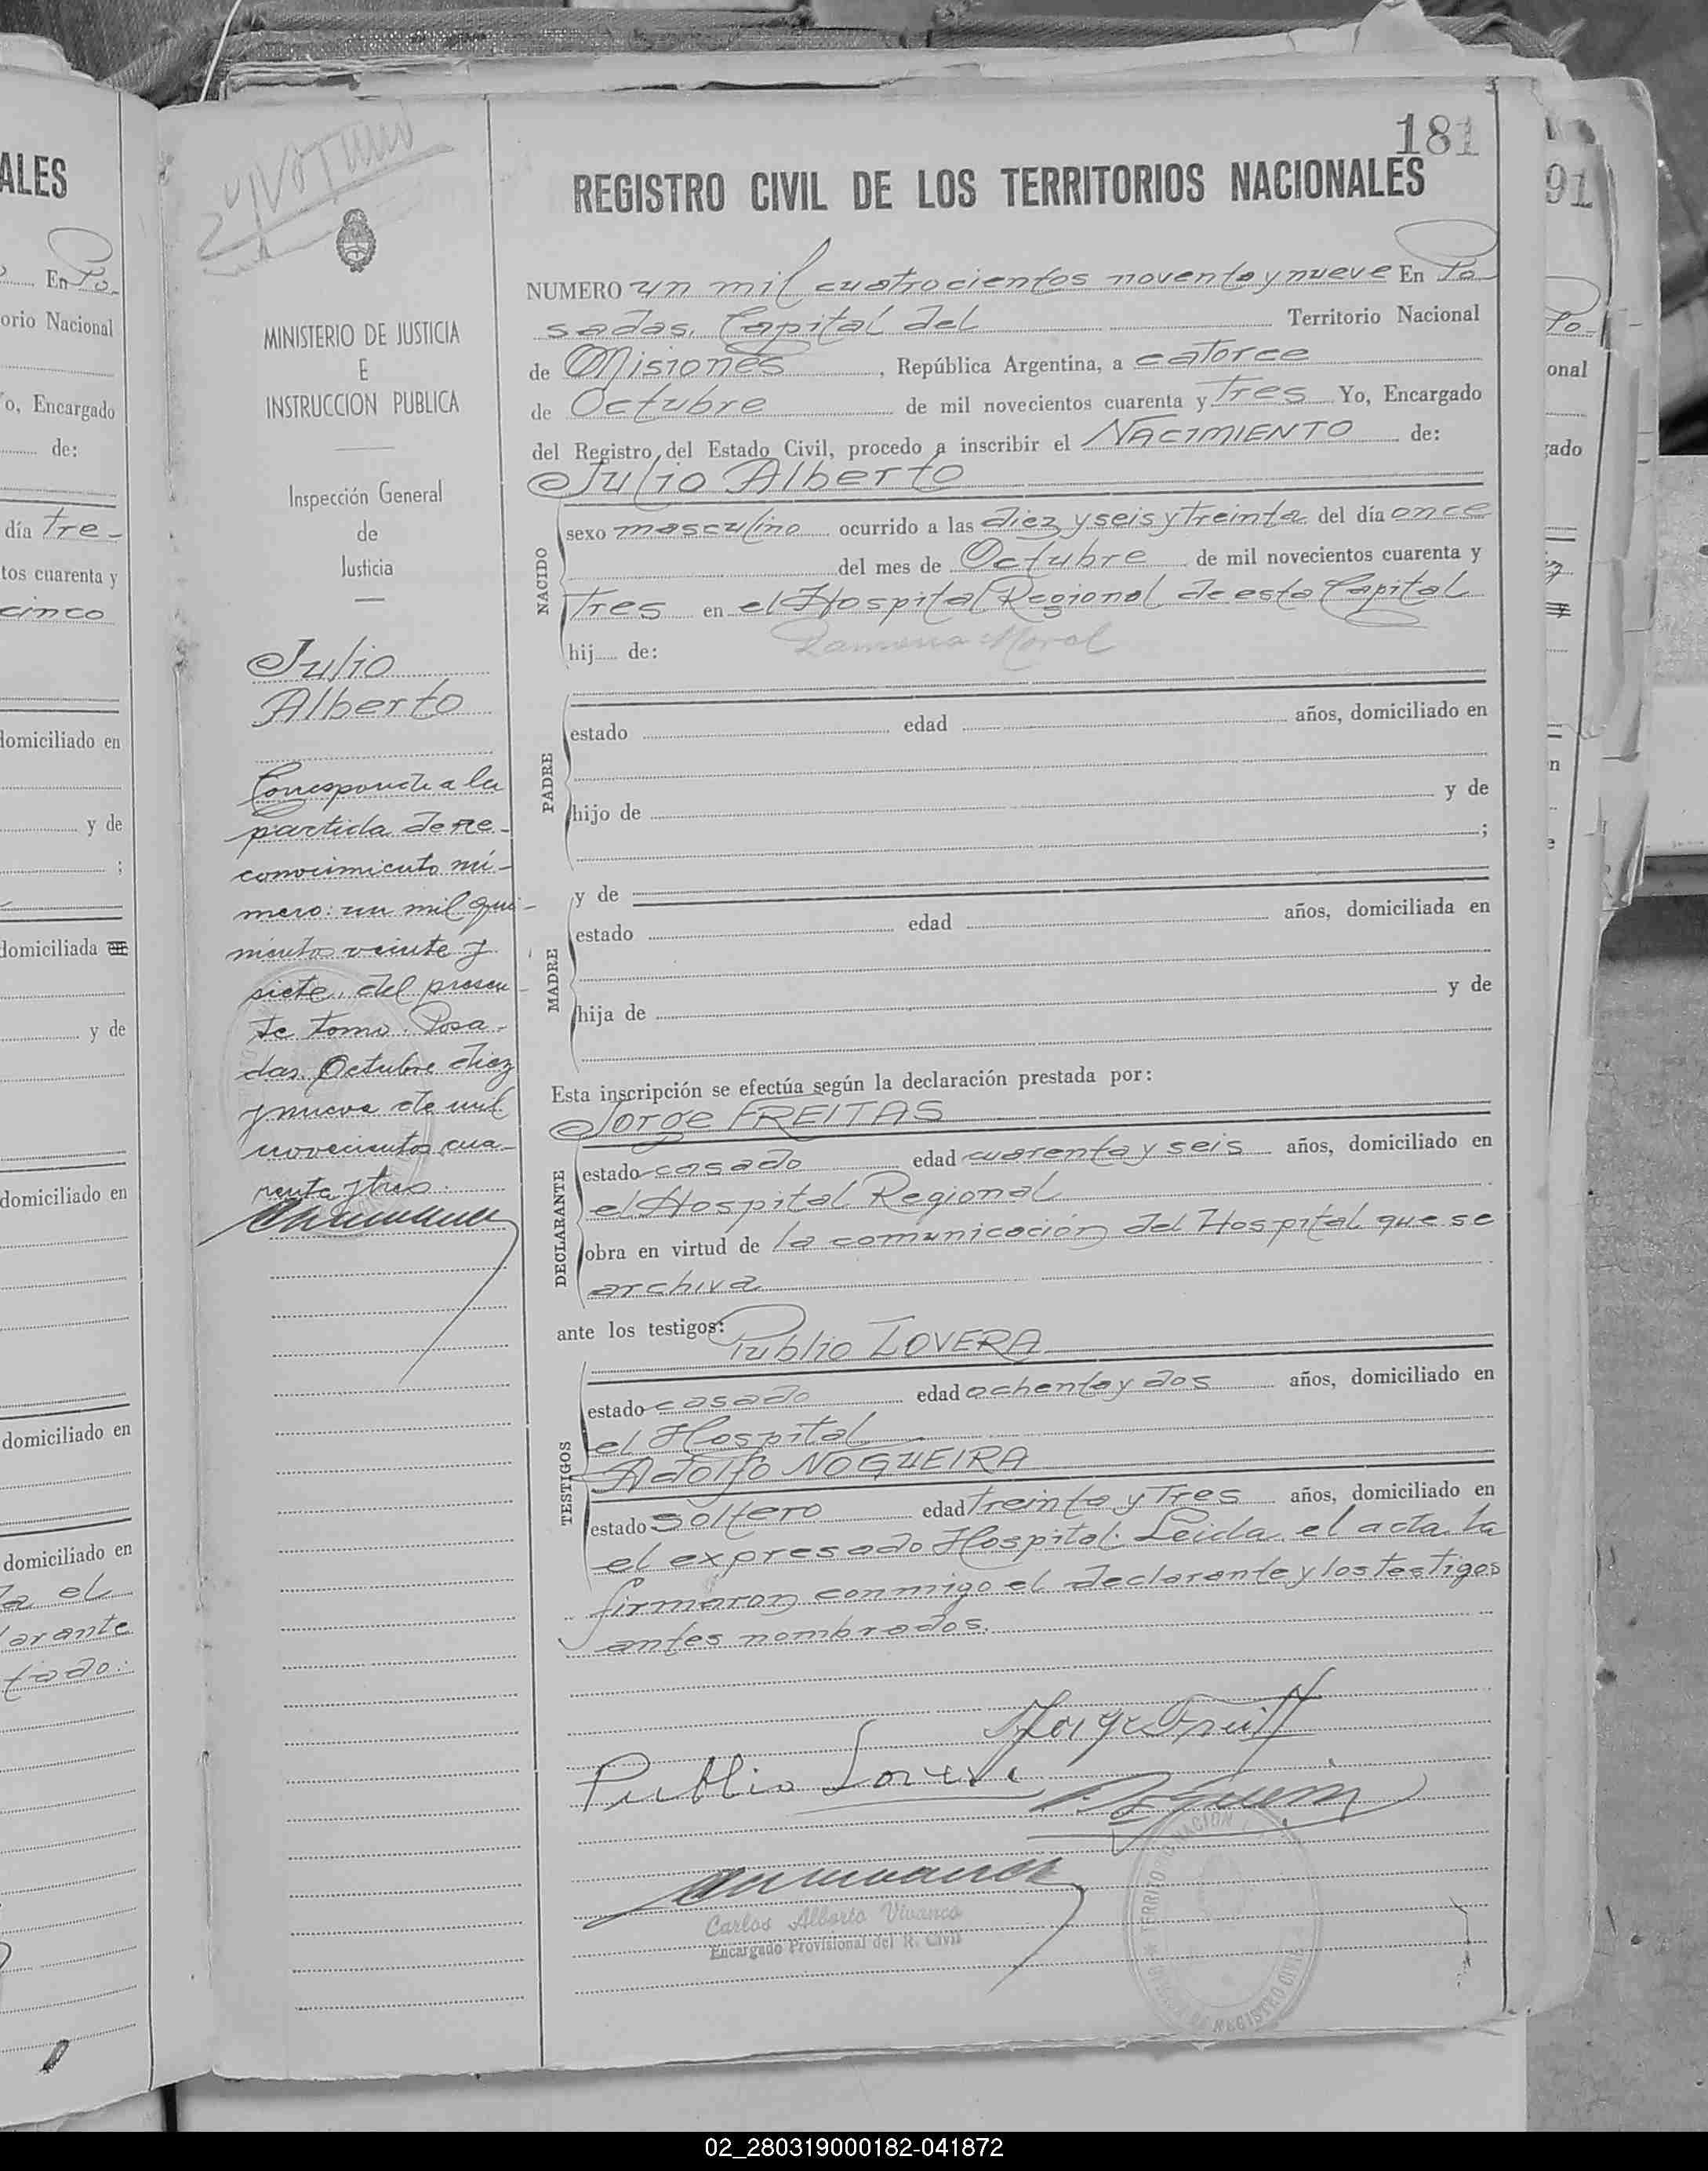 181
REGISTRO CIVIL DE LOS TERRITORIOS NACIONALES
NUMERO un mil cuatrocientos noventa y nueve En Po
sadas, Capital del Territorio Nacional
de Misiones, República Argentina, a catorce
de Octubre de mil novecientos cuarenta y Tres Yo, Encargado
del Registro del Estado Civil, procedo a inscribir el NACIMIENTO de:
Julio Alberto
NACIDO
sexo masculino ocurrido a las diez y seis y Treinta del día once
del mes de Octubre de mil novecientos cuarenta y
Tres en el Hospital Regional de esta Capital
hij de: Ramona Moral
PADRE
estado edad años, domiciliado en
hijo de y de
;
MADRE
y de
estado edad años, domiciliada en
hija de y de
Esta inscripción se efectúa según la declaración prestada por:
Jorge FREITAS
DECLARANTE
estado casado edad cuarenta y seis años, domiciliado en
el Hospital Regional
obra en virtud de la comunicación del Hospital que se
archiva
ante los testigos:
Publio LOVERA
TESTIGOS
estado casado edad ochenta y dos años, domiciliado en
el Hospital
Adolfo NOGUEIRA
estado soltero edad treinta y Tres años, domiciliado en
el expresado Hospital. Leida el acta la
firmaron conmigo el declarante y los testigos
antes nombrados.
Publio Lovera
Carlos Alberto Vivanco
Encargado Provisional del R. Civil
MINISTERIO DE JUSTICIA
E
INSTRUCCION PUBLICA
Inspección General
de
Justicia
Julio
Alberto
Corresponde a la
partida de re-
conocimiento nú-
mero: un mil qui-
nientos veinte y
siete, del presen-
te tomo. Posa-
das, Octubre diez
y nueve de mil
novecientos cua-
renta y tres.
ALES
En Po
orio Nacional
o, Encargado
de:
día Tre-
tos cuarenta y
cinco
domiciliado en
y de
;
domiciliada
y de
domiciliado en
domiciliado en
domiciliado en
a el
arante
tado.
91
Po
onal
gado
n
e
02_280319000182-041872